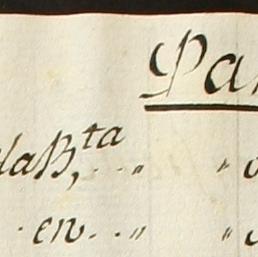 Pa
laB,ta . . " "
. en . . " "